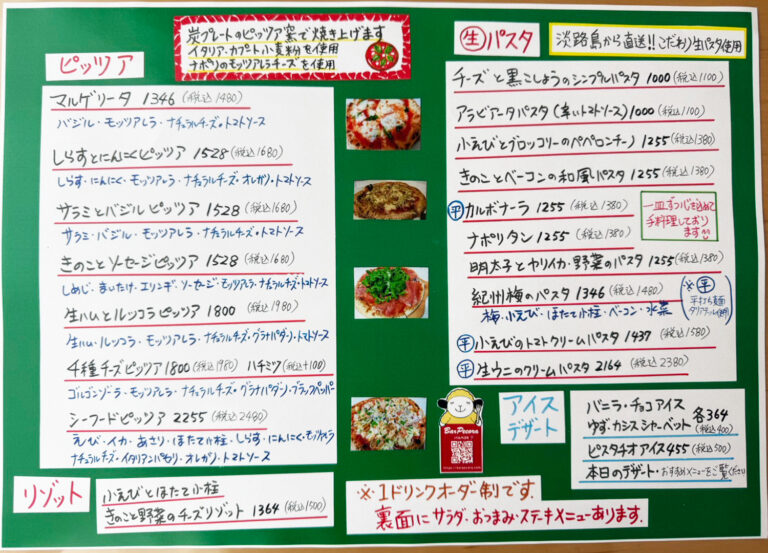 ピッツァ
炭プレートのピッツァ窯で焼き上げます
イタリア・カプト小麦粉を使用
ナポリのモッツアレラチーズを使用
マルゲリータ 1346 (税込1480)
バジル・モッツアレラ・ナチュラルチーズ・トマトソース
しらすとにんにくピッツァ 1528 (税込1680)
しらす・にんにく・モッツアレラ・ナチュラルチーズ・オレガノ・トマトソース
サラミとバジルピッツァ 1528 (税込1680)
サラミ・バジル・モッツアレラ・ナチュラルチーズ・トマトソース
きのことソーセージピッツァ 1528 (税込1680)
しめじ・まいたけ・エリンギ・ソーセージ・モッツアレラ・ナチュラルチーズ・トマトソース
生ハムとルッコラピッツァ 1800 (税込1980)
生ハム・ルッコラ・モッツアレラ・ナチュラルチーズ・グラナパダーノ・トマトソース
4種チーズピッツァ1800 (税込1980) ハチミツ (税込+100)
ゴルゴンゾーラ・モッツアレラ・ナチュラルチーズ・グラナパダーノ・ブラックペッパー
シーフードピッツァ 2255 (税込2480)
えび・イカ・あさり・ほたて小柱・しらす・にんにく・モッツアレラ
ナチュラルチーズ・イタリアンパセリ・オレガノ・トマトソース
リゾット
小えびとほたて小柱
きのこと野菜のチーズリゾット 1364 (税込1500)
生パスタ
淡路島から直送!!こだわり生パスタ使用
チーズと黒こしょうのシンプルパスタ 1000 (税込1100)
アラビアータパスタ (辛いトマトソース) 1000 (税込1100)
小えびとブロッコリーのペペロンチーノ 1255 (税込1380)
きのことベーコンの和風パスタ 1255 (税込1380)
平 カルボナーラ 1255 (税込1380)
ナポリタン 1255 (税込1380)
一皿ずつ心を込めて
手料理しており
ます
明太子とヤリイカ・野菜のパスタ 1255 (税込1380)
紀州梅のパスタ 1346 (税込1480)
梅・小えび・ほたて小柱・ベーコン・水菜
※平
平打ち麺
タリアテッレ使用
平 小えびのトマトクリームパスタ 1437 (税込1580)
平 生ウニのクリームパスタ 2164 (税込2380)
BarPecora
アイス
デザート
バニラ・チョコアイス
ゆず・カシスシャーベット
各364
(税込400)
ピスタチオアイス455 (税込500)
本日のデザート・おすすめメニューをご覧ください
※1ドリンクオーダー制です。
裏面にサラダ・おつまみ・ステーキメニューあります。